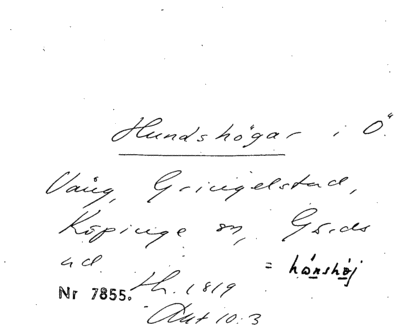 Hundshögar i Ö.
Vång, Gringelstad,
Köpinge sn, Gärds
hd. = hönshöj
Nr 7855. th. 1819
Akt 10:3